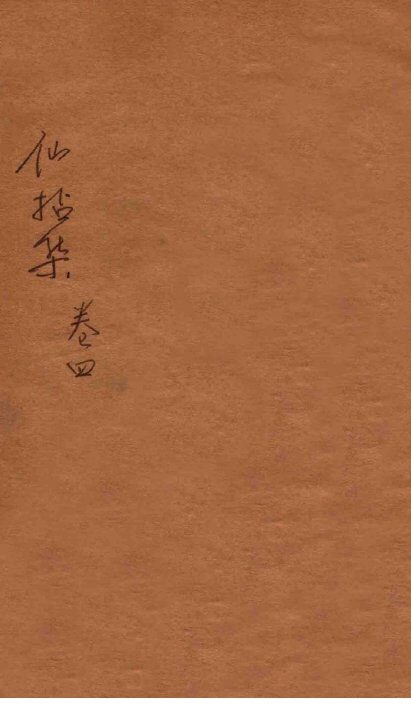 仙拈集
卷四